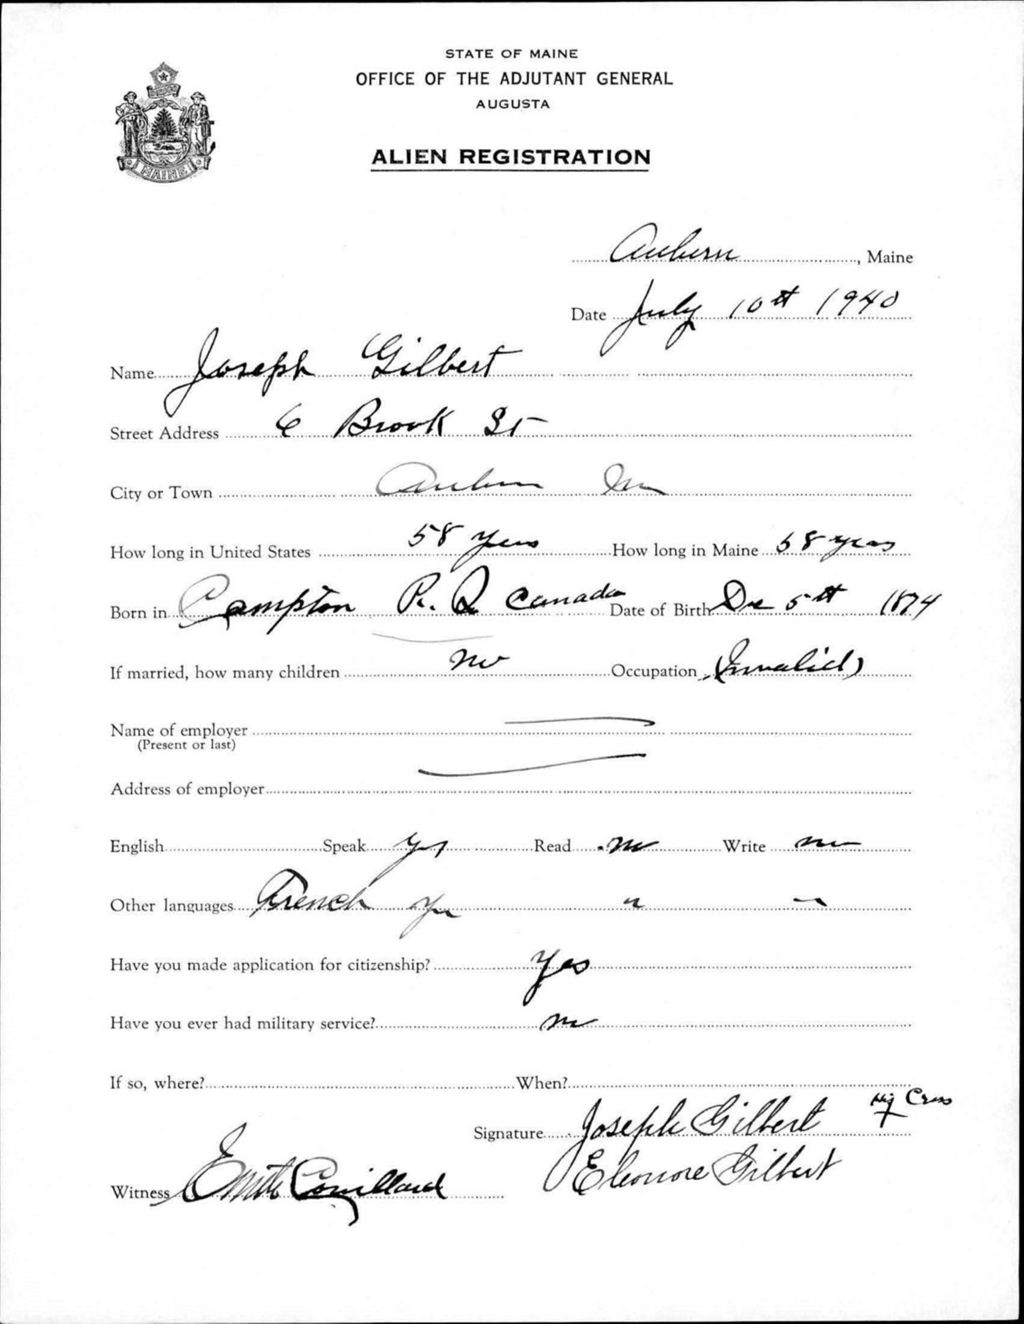 STATE OF MAINE
OFFICE OF THE ADJUTANT GENERAL
AUGUSTA
ALIEN REGISTRATION
MAINE
Auburn, Maine
Date July 10th 1940
Name Joseph Gilbert
Street Address 6 Brook St
City or Town Auburn Me
How long in United States 58 years How long in Maine 58 years
Born in Compton P. Q Canada Date of Birth De 5th 1874
If married, how many children no Occupation (Invalid)
Name of employer
(Present or last)
Address of employer
English Speak Yes Read no Write no
Other languages French Yes " "
Have you made application for citizenship? Yes
Have you ever had military service? no
If so, where? When?
Signature Joseph Gilbert His Cross
Eleonore Gilbert
Witness Couillard